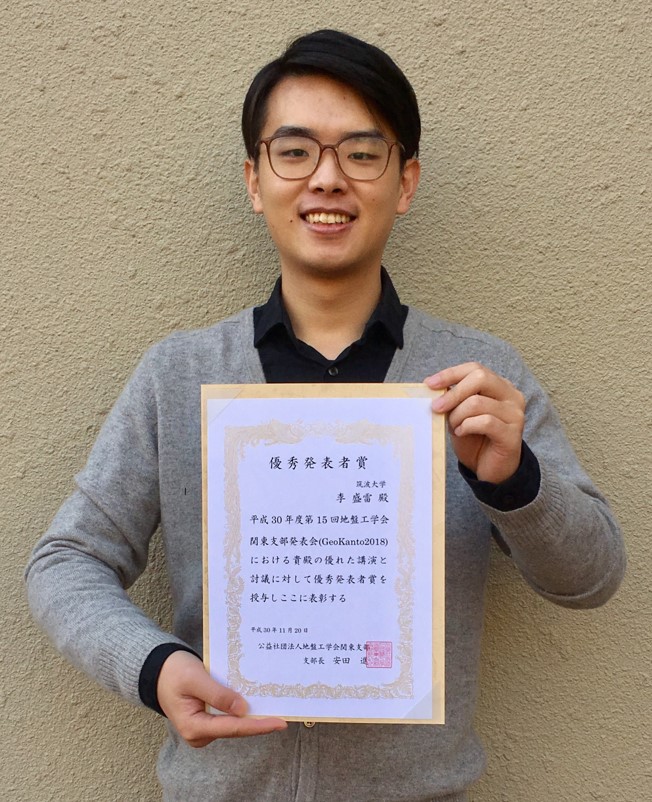 優秀発表者賞
筑波大学
李 盛雷 殿
平成 30 年度第 15 回地盤工学会
関東支部発表会(GeoKanto2018)
における貴殿の優れた講演と
討議に対して優秀発表者賞を
授与しここに表彰する
平成 30 年 11 月 20 日
公益社団法人地盤工学会関東支部
支部長 安田 進